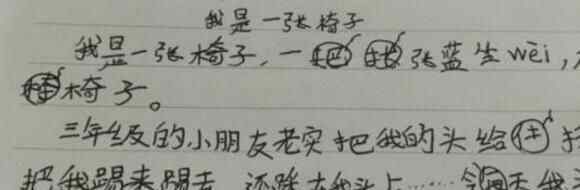 我是一张椅子
我是一张椅子,一张蓝生wèi,
椅子。
三年级的小朋友老实把我的头给
把我踢来踢去,还踩在我头上……